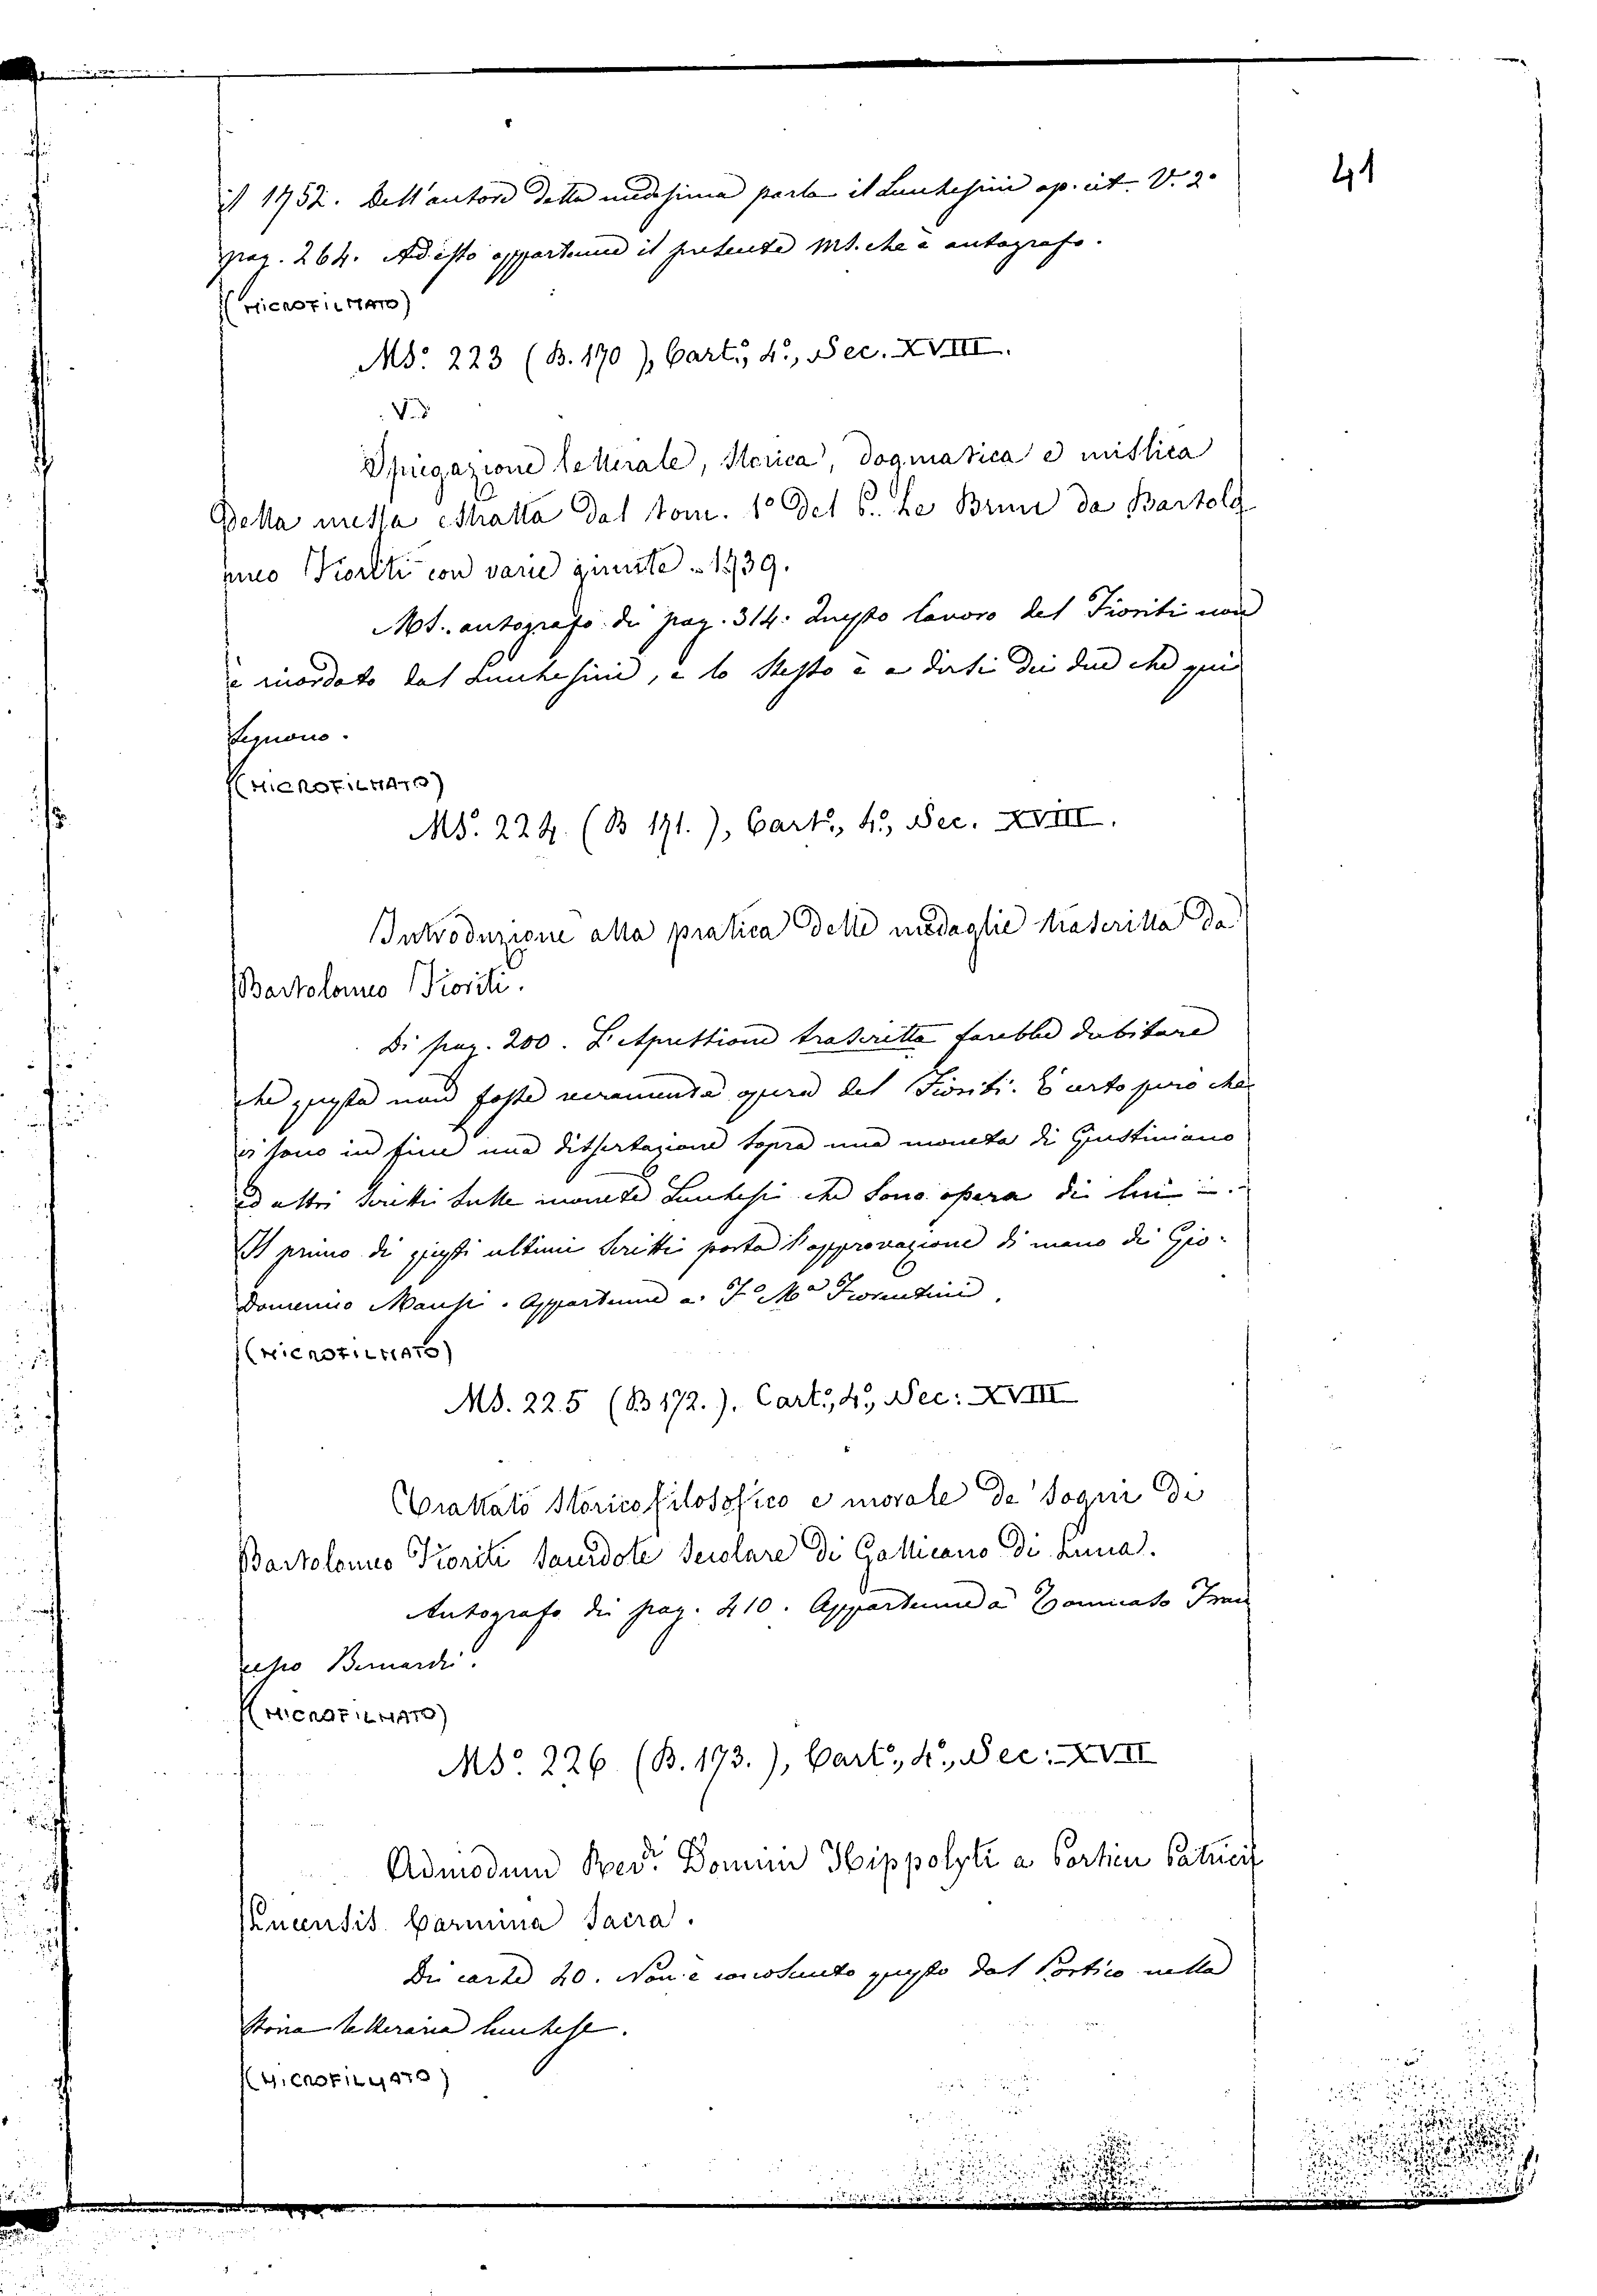 41
il 1752. Dell'autore della medesima parla il Lucchesini op. cit. V. 2º
pag. 264. Ad esso appartenne il presente ms. che è autografo.
(MICROFILMATO)
MS. 223 (B. 170), Cart., 4º, Sec. XVIII.
V.
Spiegazione letterale, storica, dogmatica e mistica
della messa estratta dal tom. 1º del P. Le Brun da Bartolo
meo Fioriti con varie giunte - 1739.
Ms. autografo di pag. 314. Questo lavoro del Fioriti non
è ricordato dal Lucchesini, e lo stesso è a dirsi dei due che qui
seguono.
(MICROFILMATO)
MS. 224. (B 171.), Cart., 4º, Sec. XVIII.
Introduzione alla pratica delle medaglie trascritta da
Bartolomeo Fioriti.
Di pag. 200. L'espressione trascritta farebbe dubitare
che questa non fosse veramente opera del Fioriti. È certo però che
vi sono in fine una dissertazione sopra una moneta di Giustiniano
ed altri scritti sulle monete Lucchesi che sono opera di lui.
Il primo di questi ultimi scritti porta l'approvazione di mano di Gio.
Domenico Mansi. Appartenne a F. Mª Fiorentini.
(MICROFILMATO)
MS. 225 (B 172.), Cart., 4º, Sec: XVIII
Trattato storico filosofico e morale de' sogni di
Bartolomeo Fioriti sacerdote secolare di Gallicano di Luna.
Autografo di pag. 210. Appartenne a Tommaso Fran
cesco Bernardi.
(MICROFILMATO)
MSº. 226 (B. 173.), Cart., 4º, Sec: XVII
Admodum Rev.di Domini Hippolyti a Porticu Patricii
Lucensis Carmina Sacra.
Di carte 20. Non è conosciuto questo dal Portico nella
storia letteraria lucchese.
(MICROFILMATO)